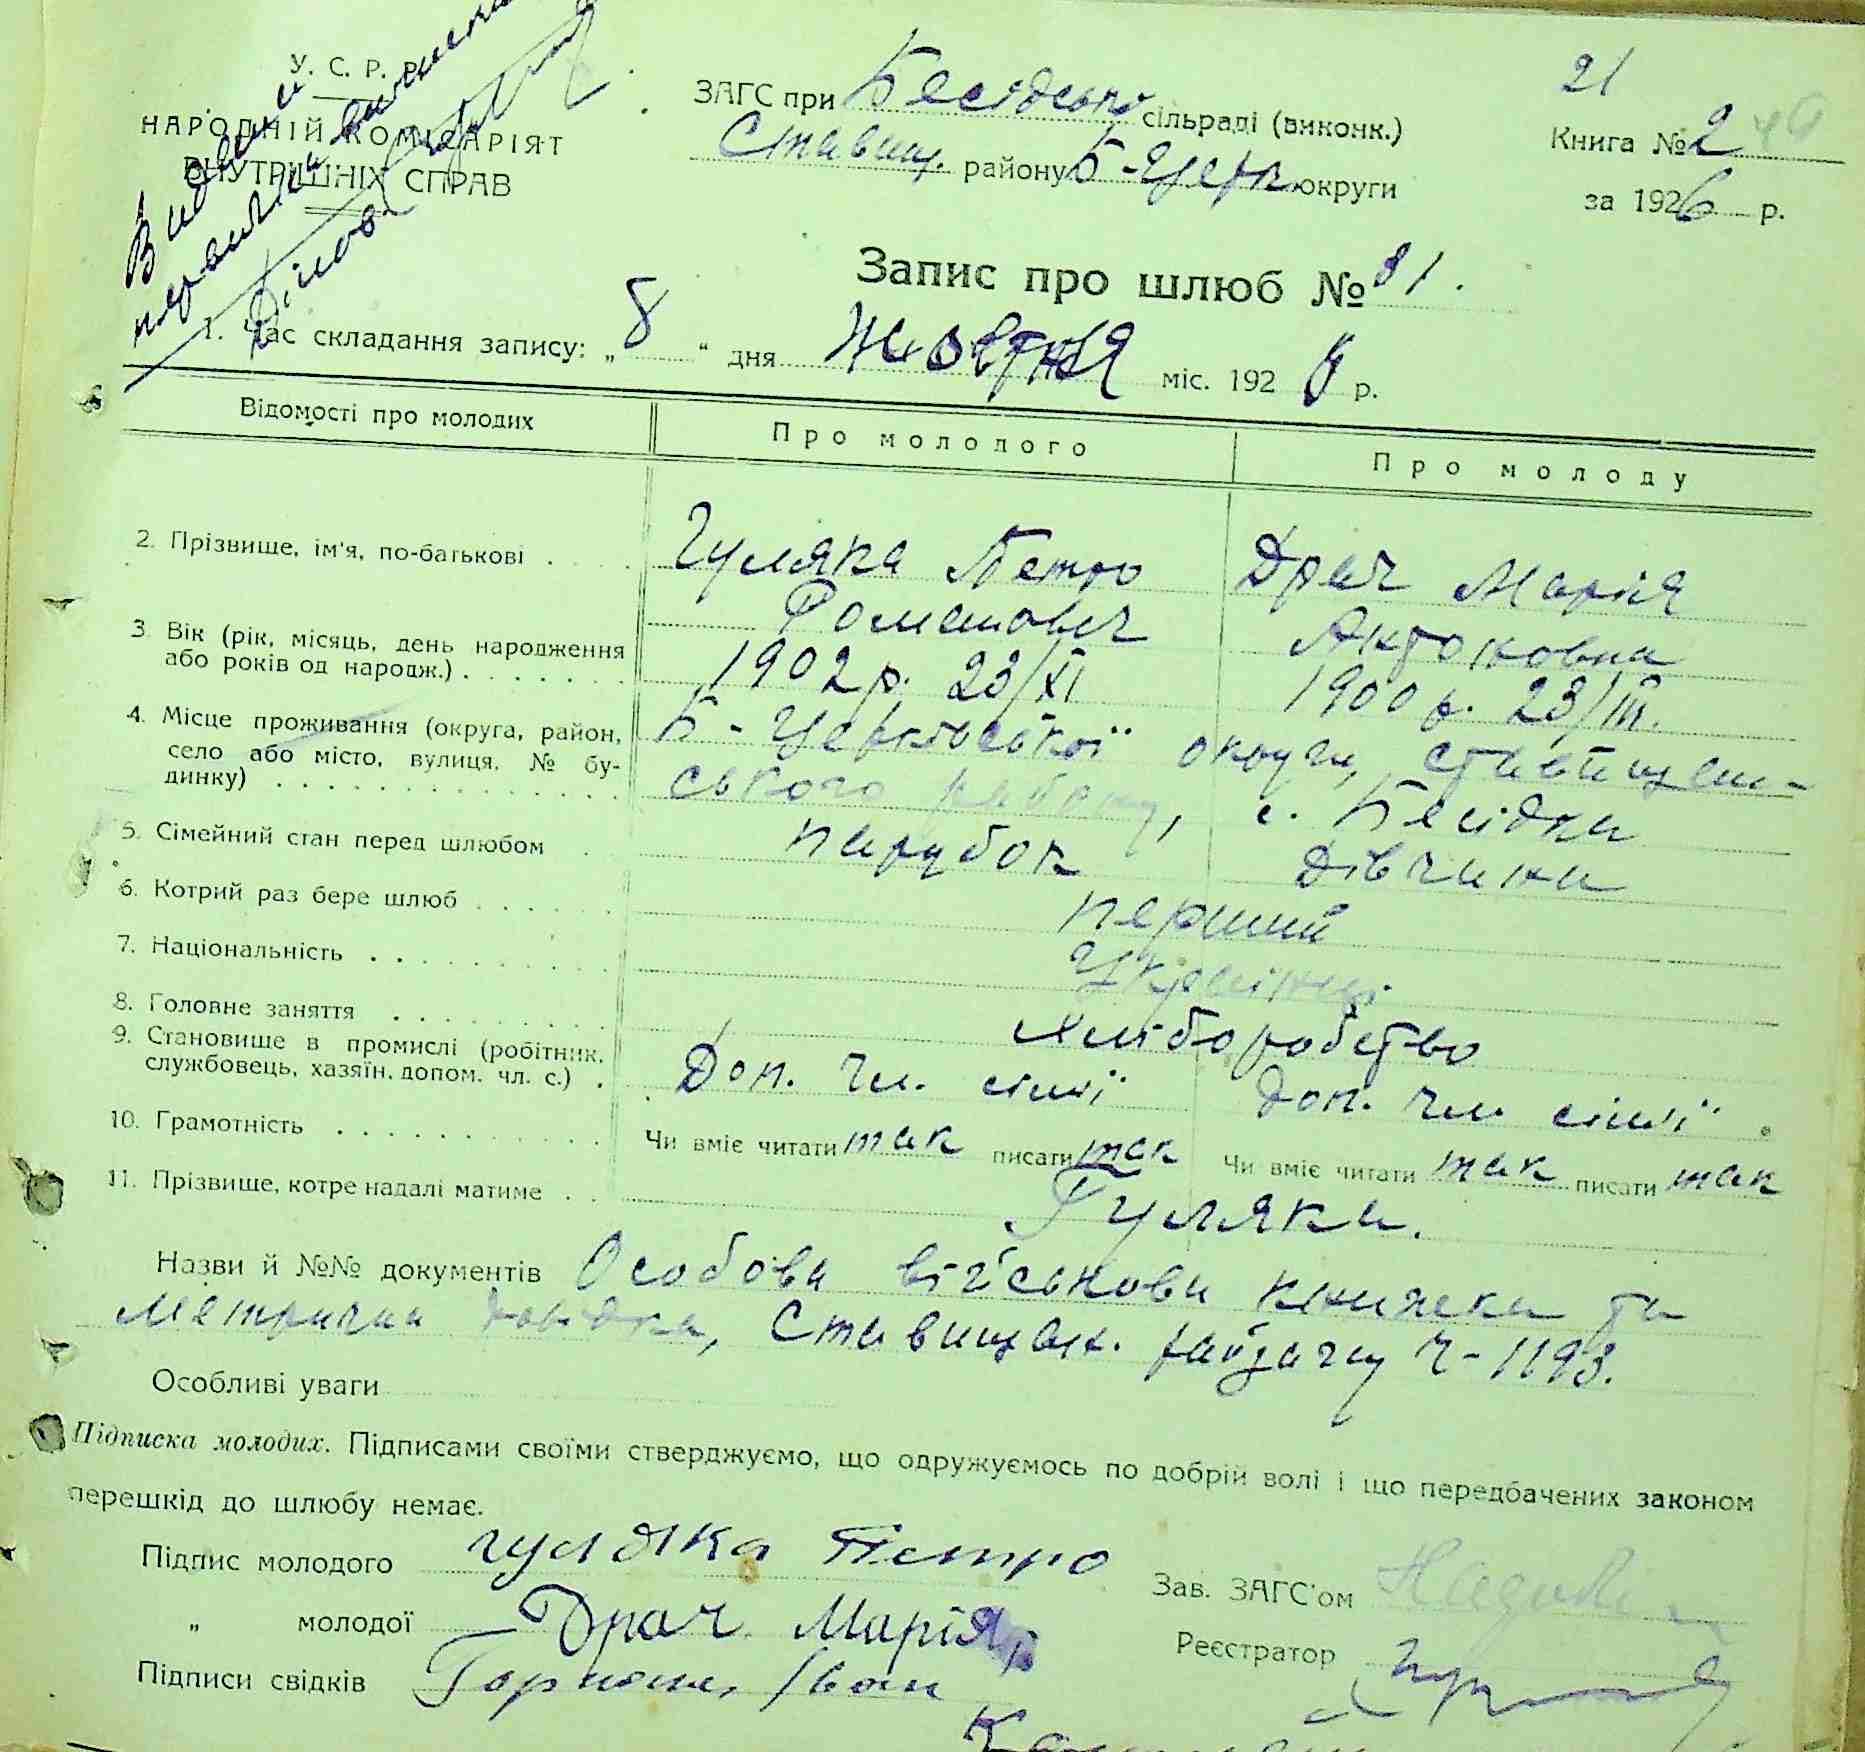 У. С. Р. Р.
НАРОДНІЙ КОМІСАРІЯТ
ВНУТРІШНІХ СПРАВ
ЗАГС при Бесідській сільраді (виконк.)
Ставищ. району Б-Церк. округи
21
Книга № 2
за 1926 р.
Запис про шлюб № 81.
1. Час складання запису: „8“ дня Жовтня міс. 1926 р.
Відомості про молодих
Про молодого
Про молоду
2. Прізвище, ім'я, по-батькові . . . Гуляка Петро Романович
Драч Марія Антоновна
3. Вік (рік, місяць, день народження або років од народж.) . . . . . . . 1902 р. 23/XI
1900 р. 23/III.
4. Місце проживання (округа, район, село або місто, вулиця, № будинку) . . . . . . . . . . . . . Б-Церківської округи, Ставищан-
ського району, с. Бесідка
5. Сімейний стан перед шлюбом . парубок дівчина
6. Котрий раз бере шлюб . . . . . . перший
7. Національність . . . . . . . . . . Українці
8. Головне заняття . . . . . . . . . Хліборобство
9. Становище в промислі (робітник, службовець, хазяїн, допом. чл. с.) . Доп. чл. сімї доп. чл. сімї
10. Грамотність . . . . . . . . . . . Чи вміє читати так писати так Чи вміє читати так писати так
11. Прізвище, котре надалі матиме . . Гуляка.
Назви й №№ документів Особова військова книжка та
метрична довідка, Ставищан. райзагсу Ч-1193.
Особливі уваги
Підписка молодих. Підписами своїми стверджуємо, що одружуємось по добрій волі і що передбачених законом
перешкід до шлюбу немає.
Підпис молодого гуляка Петро
Зав. ЗАГС'ом
„ молодої Драч Марія
Реєстратор
Підписи свідків Іван